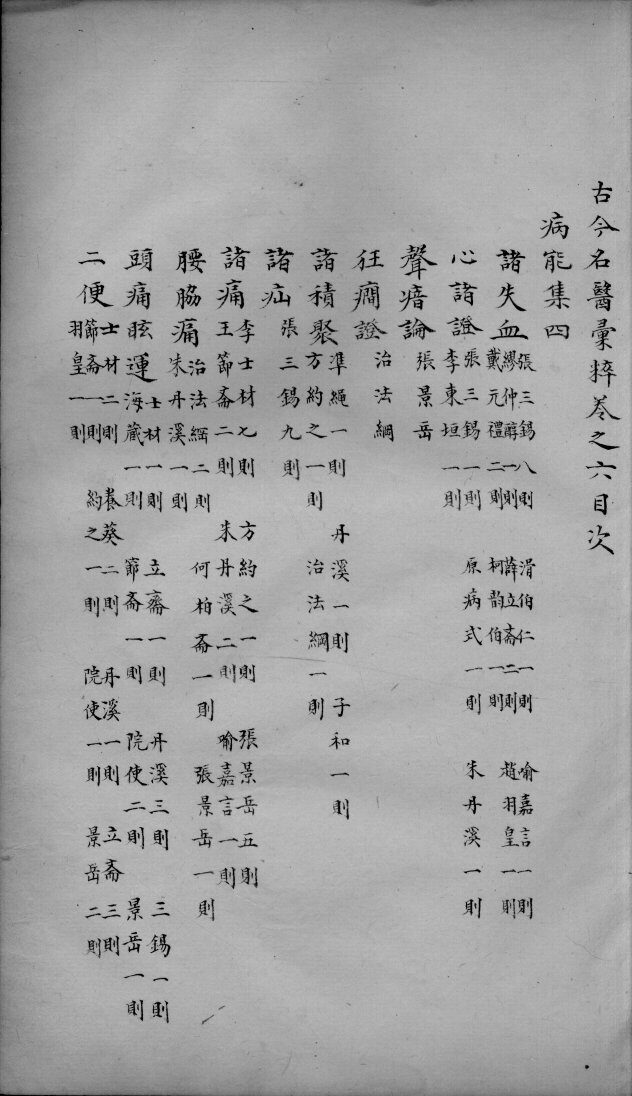 古今名醫彙粹卷之六目次
病能集四
諸失血
張三錫八則 滑伯仁一則 喻嘉言一則
繆仲醇一則 薛立齋二則 趙羽皇一則
戴元禮二則 柯韵伯一則
心諸證
張三錫一則 原病式一則 朱丹溪一則
李東垣一則
聲瘖論
張景岳
狂癇證
治法綱
諸積聚
準繩一則 丹溪一則 子和一則
方約之一則 治法綱一則
諸疝
張三錫九則
諸痛
李士材七則 方約之一則 張景岳五則
王節齋二則 朱丹溪二則 喻嘉言一則
腰脇痛
治法綱二則 何柏齋一則 張景岳一則
朱丹溪一則
頭痛眩運
士材一則 立齋一則 丹溪三則 三錫一則
海藏一則 節齋一則 院使二則 景岳一則
二便
士材二則 養葵二則 丹溪一則 立齋三則
節齋一則 約之一則 院使一則 景岳二則
羽皇一則